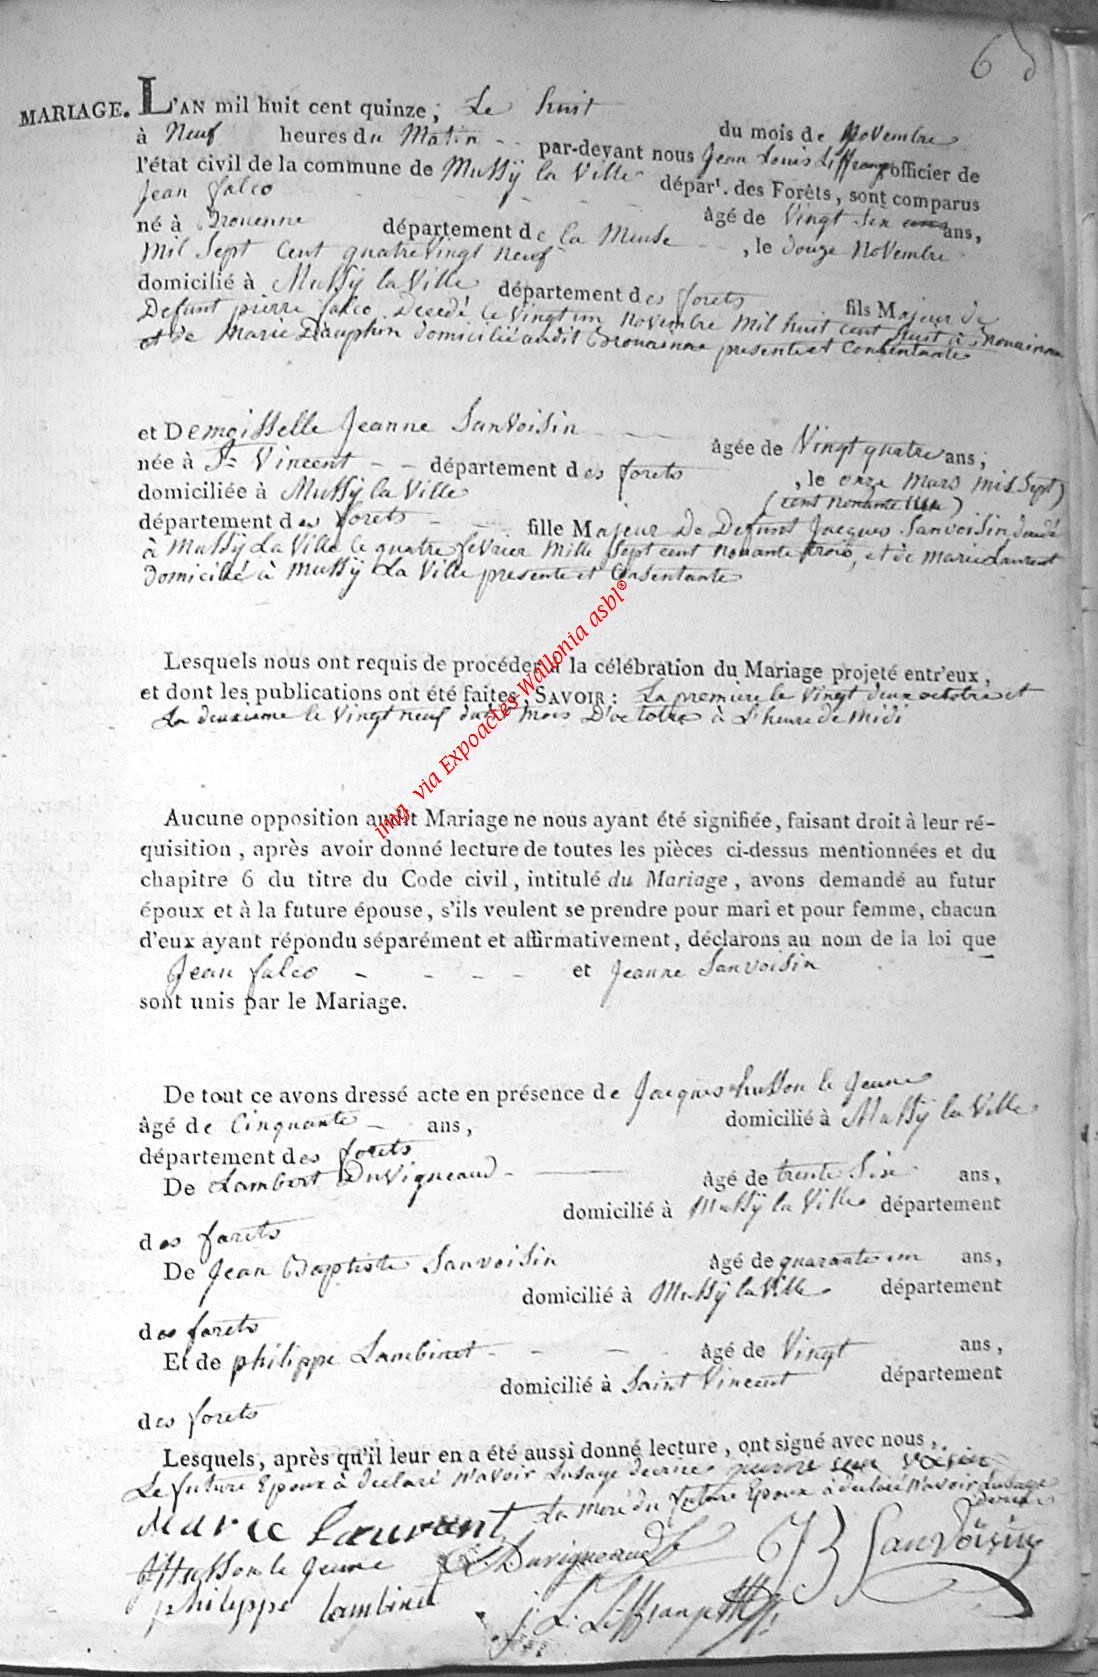 6
MARIAGE. L'AN mil huit cent quinze, Le huit
du mois de Novembre
à Neuf heures du Matin par-devant nous Jean Louis officier de
l'état civil de la commune de Mussÿ la Ville dépar.t des Forêts, sont comparus
Jean falco
âgé de Vingt six ans,
né à Brouenne département de la Meuse, le douze Novembre
Mil Sept Cent quatrevingt neuf
domicilié à Mussÿ la Ville département des forets
fils Majeur de
Defunt pierre falco Decedé le vingt un novembre Mil huit cent huit à
et de Marie Dauphin domicilié audit Brouainne presente et consentante
et Demoisselle Jeanne Sanvoisin
âgée de Vingt quatre ans,
née à St Vincent département des forets, le onze mars mil Sept
(cent nonante)
domiciliée à Mussÿ la Ville
département des forets fille Majeur De Defunt Jacques Sanvoisin
à Mussÿ La Ville le quatre fevrier Mille Sept cent nonante trois, et de Marie Laurent
domicilié à Mussÿ La Ville presente et Consentante
Lesquels nous ont requis de procéder à la célébration du Mariage projeté entr'eux,
et dont les publications ont été faites, SAVOIR : La premiere le vingt deux octobre et
La deuxieme le vingt neuf dudit mois D'octobre à L'heure de midi
img via Expoactes-Wallonia asbl®
Aucune opposition audit Mariage ne nous ayant été signifiée, faisant droit à leur ré-
quisition, après avoir donné lecture de toutes les pièces ci-dessus mentionnées et du
chapitre 6 du titre du Code civil, intitulé du Mariage, avons demandé au futur
époux et à la future épouse, s'ils veulent se prendre pour mari et pour femme, chacun
d'eux ayant répondu séparément et affirmativement, déclarons au nom de la loi que
Jean falco et Jeanne Sanvoisin
sont unis par le Mariage.
De tout ce avons dressé acte en présence de Jacques husson le Jeune
âgé de Cinquante ans, domicilié à Mussÿ la Ville
département des forets
De Lambert Duvigneaud âgé de trente Six ans,
domicilié à Mussÿ la Ville département
des forets
De Jean Baptiste Sanvoisin âgé de quarante un ans,
domicilié à Mussÿ la Ville département
des forets
Et de philippe Lambinet âgé de Vingt ans,
domicilié à Saint Vincent département
des forets
Lesquels, après qu'il leur en a été aussi donné lecture, ont signé avec nous,
Le future Epoux à declaré n'avoir Lusage decrire
La mere du future Epoux à declaré n'avoir Lusage
decrire
Marie Laurent
Husson le Jeune L. Duvigneaud JB Sanvoisin
philippe lambinet